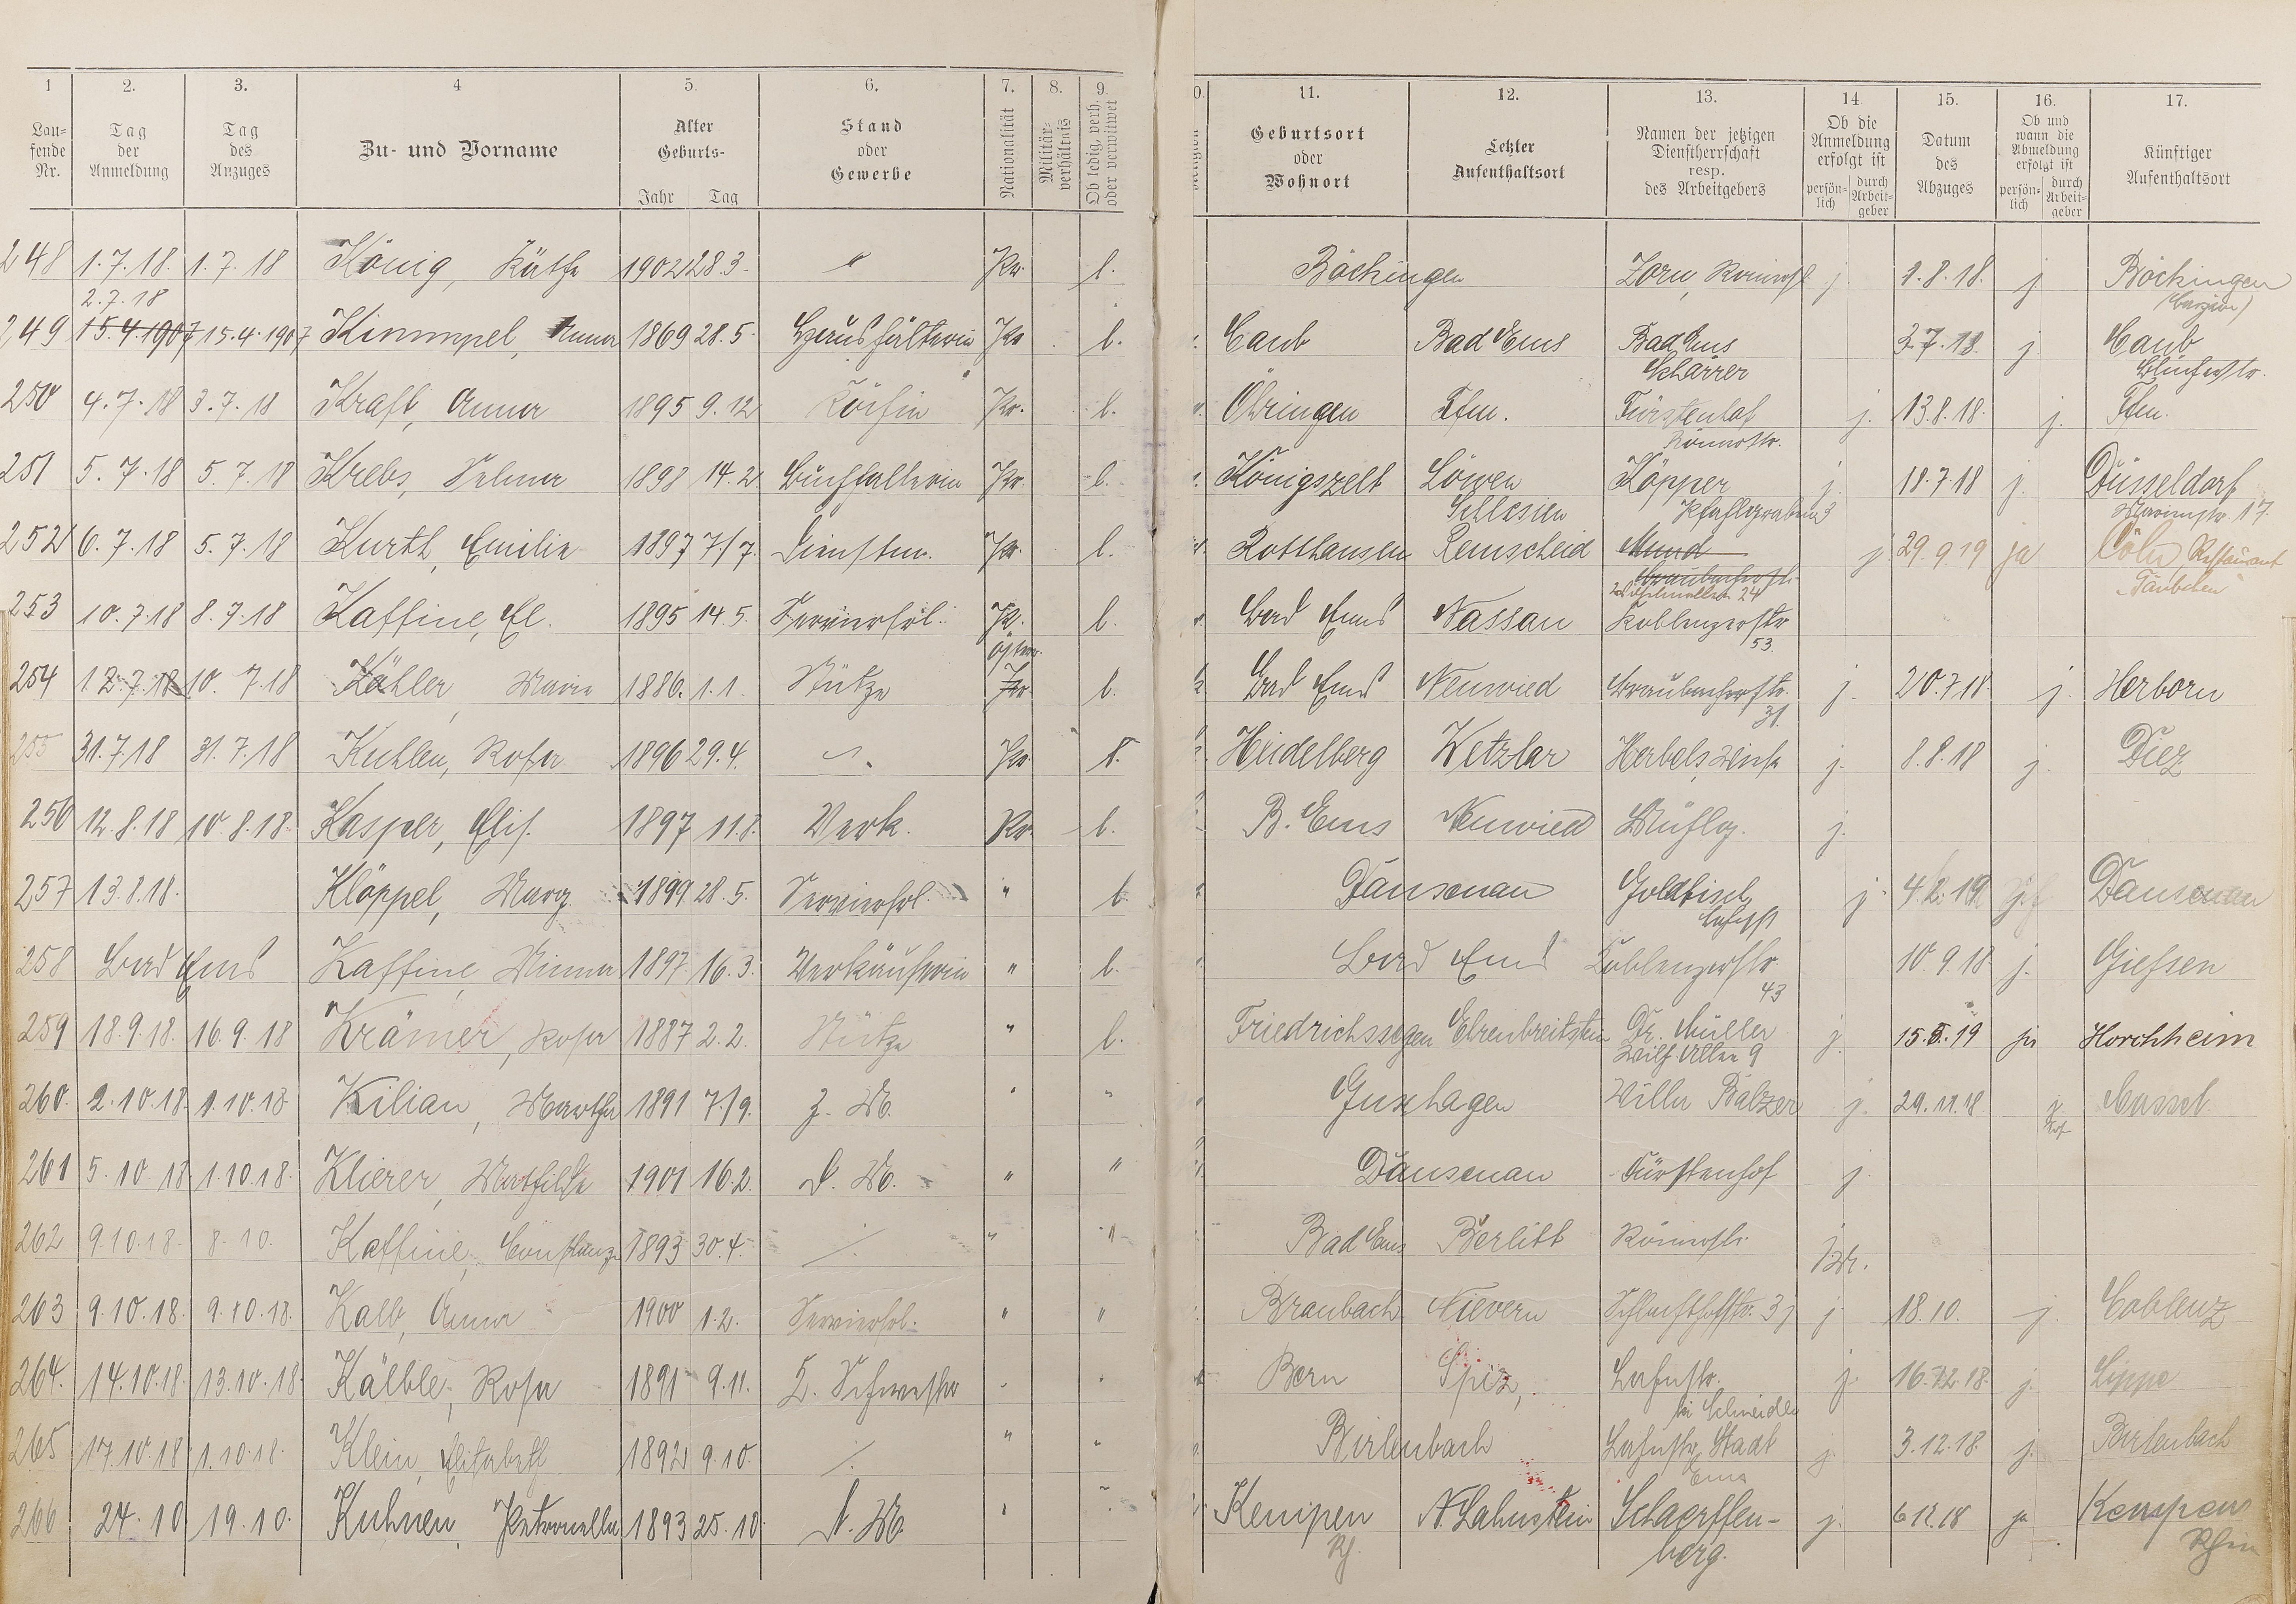 1 2. 3. 4 5. 6. 7. 8. 9. 0. 11. 12. 13. 14. 15. 16. 17.
Lau-fende Nr. | Tag der Anmeldung | Tag des Anzuges | Zu- und Vorname | Alter Geburts- Jahr Tag | Stand oder Gewerbe | Nationalität | Militär-verhältnis | Ob ledig, verh. oder verwitwet | Religion | Geburtsort oder Wohnort | Letzter Aufenthaltsort | Namen der jetzigen Dienstherrschaft resp. des Arbeitgebers | Ob die Anmeldung erfolgt ist persön-lich durch Arbeit-geber | Datum des Abzuges | Ob und wann die Abmeldung erfolgt ist persön-lich durch Arbeit-geber | Künftiger Aufenthaltsort
248 1.7.18. 1.7.18 König, Käthe 1902 28.3. " Pr. l. Böchingen Zorn, Römerstr j. 1.8.18. j. Böchingen
2.7.18
249 15.4.1907 15.4.1907 Kimmpel, Anna 1869 28.5. Haushälterin Pr. l. Caub Bad Ems Bad Ems 3.7.18. j. Caub
Scharrer Blücherstr.
250 4.7.18 3.7.18 Kraft, Anna 1895 9.12 Köchin Pr. l. Öhringen Ffm. Fürstenhof j. 13.8.18. j. Ffm.
Römerstr.
251 5.7.18 5.7.18 Krebs, Selma 1898 14.2 Buchhalterin Pr. l. Königszelt Löwen Köpper j. 18.7.18 j. Düsseldorf
Schlesien Pfahlgraben 3 Marienstr. 17
252 6.7.18 5.7.18 Kurth, Emilie 1897 7/7. Dienstm. Pr. l. Rotthausen Remscheid Mund j. 29.9.19 ja Cöln, Restaurant
Braubacherstr. "Täubchen"
Wilhelmsallee 24
253 10.7.18 8.7.18 Kaffine, El. 1895 14.5. Servierfrl. Pr. l. Bad Ems Nassau Koblenzerstr
53.
österr.
254 12.7.18 10.7.18 Köhler, Maria 1886. 1.1. Stütze Pr. l. Bad Ems Neuwied Braubacherstr. j. 20.7.18. j. Herborn
31.
255 31.7.18 31.7.18 Kuhlen, Rosa 1896 29.4. Pr. Heidelberg Wetzlar j. 8.8.18 j. Diez
256 12.8.18 10.8.18. Kasper, Elis. 1897 11.8. Verk. Pr. l. B. Ems Neuwied j.
257 13.8.18. Klöppel, Marg. 1899 28.5. Servierfrl. " l. Dausenau Goldfisch j. Dausenau
Lahnstr
258 Bad Ems Kaffine, Minna 1897 16.3. Verkäuferin " l. Bad Ems Coblenzerstr. 10.9.18. j. Giefsen
43
259 18.9.18. 16.9.18 Krämer, Rosa 1887 2.2. Stütze " l. Friedrichssegen Ehrenbreitstein Dr. Müller j. 15.5.19 ja Horchheim
Wilh. Allee 9
260. 2.10.18. 1.10.18 Kilian, Martha 1891 7./9. Z. M. " " Guxhagen Villa Balzer j. 29.11.18 j. Cassel
261 5.10.18. 1.10.18. Klierer, Mathilde 1901 16.2. D. M. " " Dausenau Fürstenhof j.
262 9.10.18. 8.10. Kaffine, Constanze 1893 30.4. ./. " " Bad Ems Römerstr.
263 9.10.18. 9.10.18. Kalb, Anna 1900 1.2. Servierfrl. " " Braubach Nievern Schlachthofstr. 3 j j. 18.10. j. Coblenz
264. 14.10.18. 13.10.18. Kälble, Rosa 1891 9.11. Schwester Bern Spiez, Lahnstr. j. 16.12.18. j. Lippe
bei Schneider
265 17.10.18 1.10.18. Klein, Elisabeth 1892 9.10. ./. " " Birlenbach Lahnstr. Stadt j. 3.12.18. j. Birlenbach
Ems
266 24.10. 19.10. Kuhnen, Petronella 1893 25.10. D. M. Kempen N. Lahnstein Schaerffen- j. 6.12.18 ja Kempen
Rh. berg. Rhein